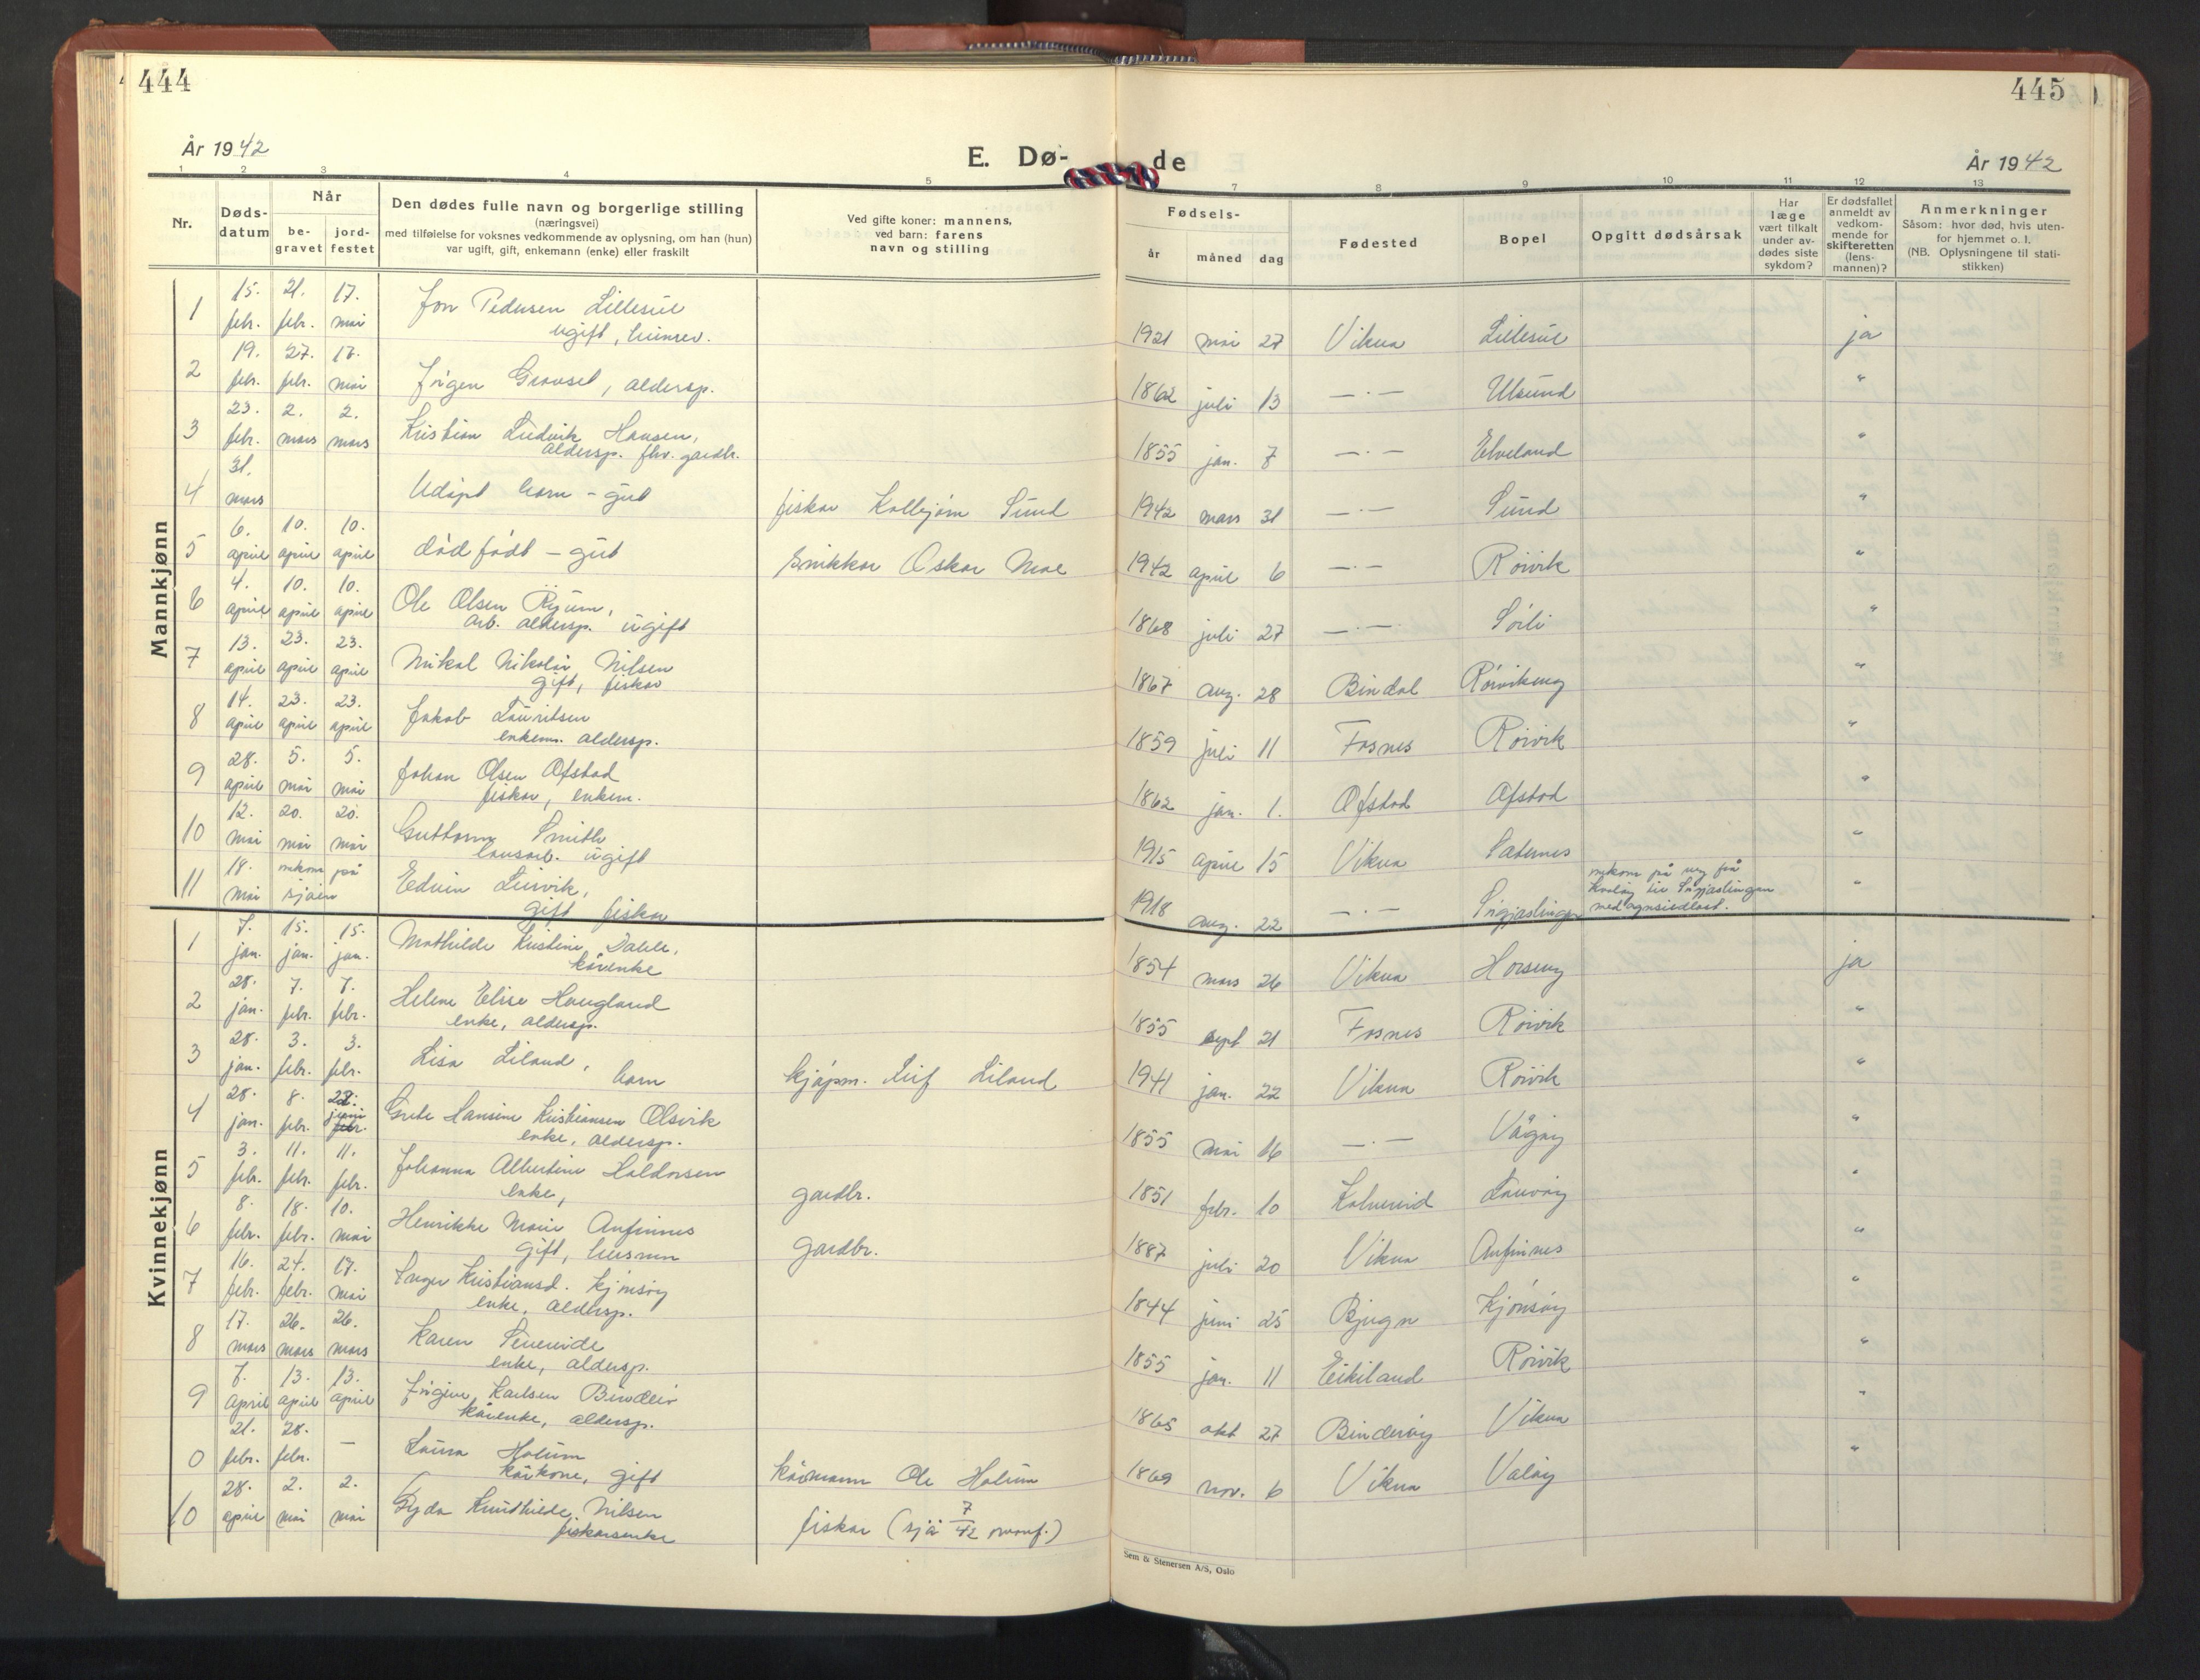 444
445
År 1942
E. Dø-
de
År 1942
1 2 3 4 5 7 8 9 10 11 12 13
Nr.
Døds-
datum
Når
be-
gravet
jord-
festet
Den dødes fulle navn og borgerlige stilling
(næringsvei)
med tilføielse for voksnes vedkommende av oplysning, om han (hun)
var ugift, gift, enkemann (enke) eller fraskilt
Ved gifte koner: mannens,
ved barn: farens
navn og stilling
Fødsels-
år måned dag
Fødested
Bopel
Opgitt dødsårsak
Har
læge
vært tilkalt
under av-
dødes siste
sykdom?
Er dødsfallet
anmeldt av
vedkom-
mende for
skifteretten
(lens-
mannen)?
Anmerkninger
Såsom: hvor død, hvis uten-
for hjemmet o. l.
(NB. Oplysningene til stati-
stikken)
Mannkjønn
1 15. febr. 21. febr. 17. mai Jon Pedersen Lillesúl 1921 mai 27 Vikna Lillesúl ja
ugift,
2 19. febr. 27. febr. 17. mai Jörgen Gravset, aldersp. 1862 juli 13 — · — Ulsund "
3 23. febr. 2. mars 2. mars Kristian Ludvik Hansen, 1855 jan. 7 — · — Elveland "
aldersp. fhv. gardbr.
4 31. mars Udöpt barn - gut fiskar Kolbjörn Sund 1942 mars 31 — · — Sund "
5 6. april 10. april 10. april död födt - gut Snikkar Oskar Moe 1942 april 6 — · — Rörvik "
6 4. april 10. april 10. april Ole Olsen Ryum, 1868 juli 27 — · — Sörli "
arb. aldersp. ugift
7 13. april 23. april 23. april Mikal Nikolai Nilsen 1867 aug. 28 Bindal "
gift, fiskar
8 14. april 23. april 23. april Jakob Lauritsen 1859 juli 11 Fosnes Rörvik "
enkem. aldersp.
9 28. april 5. mai 5. mai Johan Olsen Ofstad 1862 jan. 1. Ofstad Ofstad "
fiskar, enkem.
10 12. mai 20. mai 20. mai Guttorm Smith 1915 april 15 Vikna "
ugift
11 18. mai omkom på sjöen Edvin Leirvik, 1918 aug. 22 — · — omkom på veg frå "
gift fiskar
Kvinnekjønn
1 7. jan. 15. jan. 15. jan. Mathilde Kristine Dahle, 1854 mars 26 Vikna Horsöy ja
kårenke
2 28. jan. 7. febr. 7. febr. Helene Elise Haugland 1855 sept 21 Fosnes Rörvik "
enke, aldersp.
3 28. jan. 3. febr. 3. febr. Lisa Liland, barn kjöpm. Leif Liland 1941 jan. 22 Vikna Rörvik "
4 28. jan. 8. febr. 28. juni Grete Hansine Kristiansen Olsvik 1855 mai 16 — · — Vågöy "
enke, aldersp.
5 3. febr. 11. febr. 11. febr. Johanna Albertine Haldorsen gardbr. 1851 febr. 10 Kolvereid Lauvöy "
enke,
6 8. febr. 18. febr. 10. mai Henrikke Marie Anfinnes gardbr. 1887 juli 20 Vikna Anfinnes "
gift, husmor
7 16. febr. 24. febr. 17. mai Inger Kristiansd. Kjönsöy 1844 juni 25 Bjugn Kjönsöy "
enke, aldersp.
8 17. mars 26. mars 26. mars Karen 1855 jan. 11 Eikiland Rörvik "
enke, aldersp.
9 7. april 13. april 13. april Jörgine Karlsen 1865 okt 27 Binderöy Vikna "
kårenke, aldersp.
0 21. febr. 28. febr. — Laura Holum kårmann Ole Holum 1869 nov. 6 Vikna Valöy "
kårkone, gift
10 28. april 2. mai 2. mai Gyda Nilsen fiskar (sjå 7/42 ovanf.)
fiskarenke
Sem & Stenersen A/S, Oslo